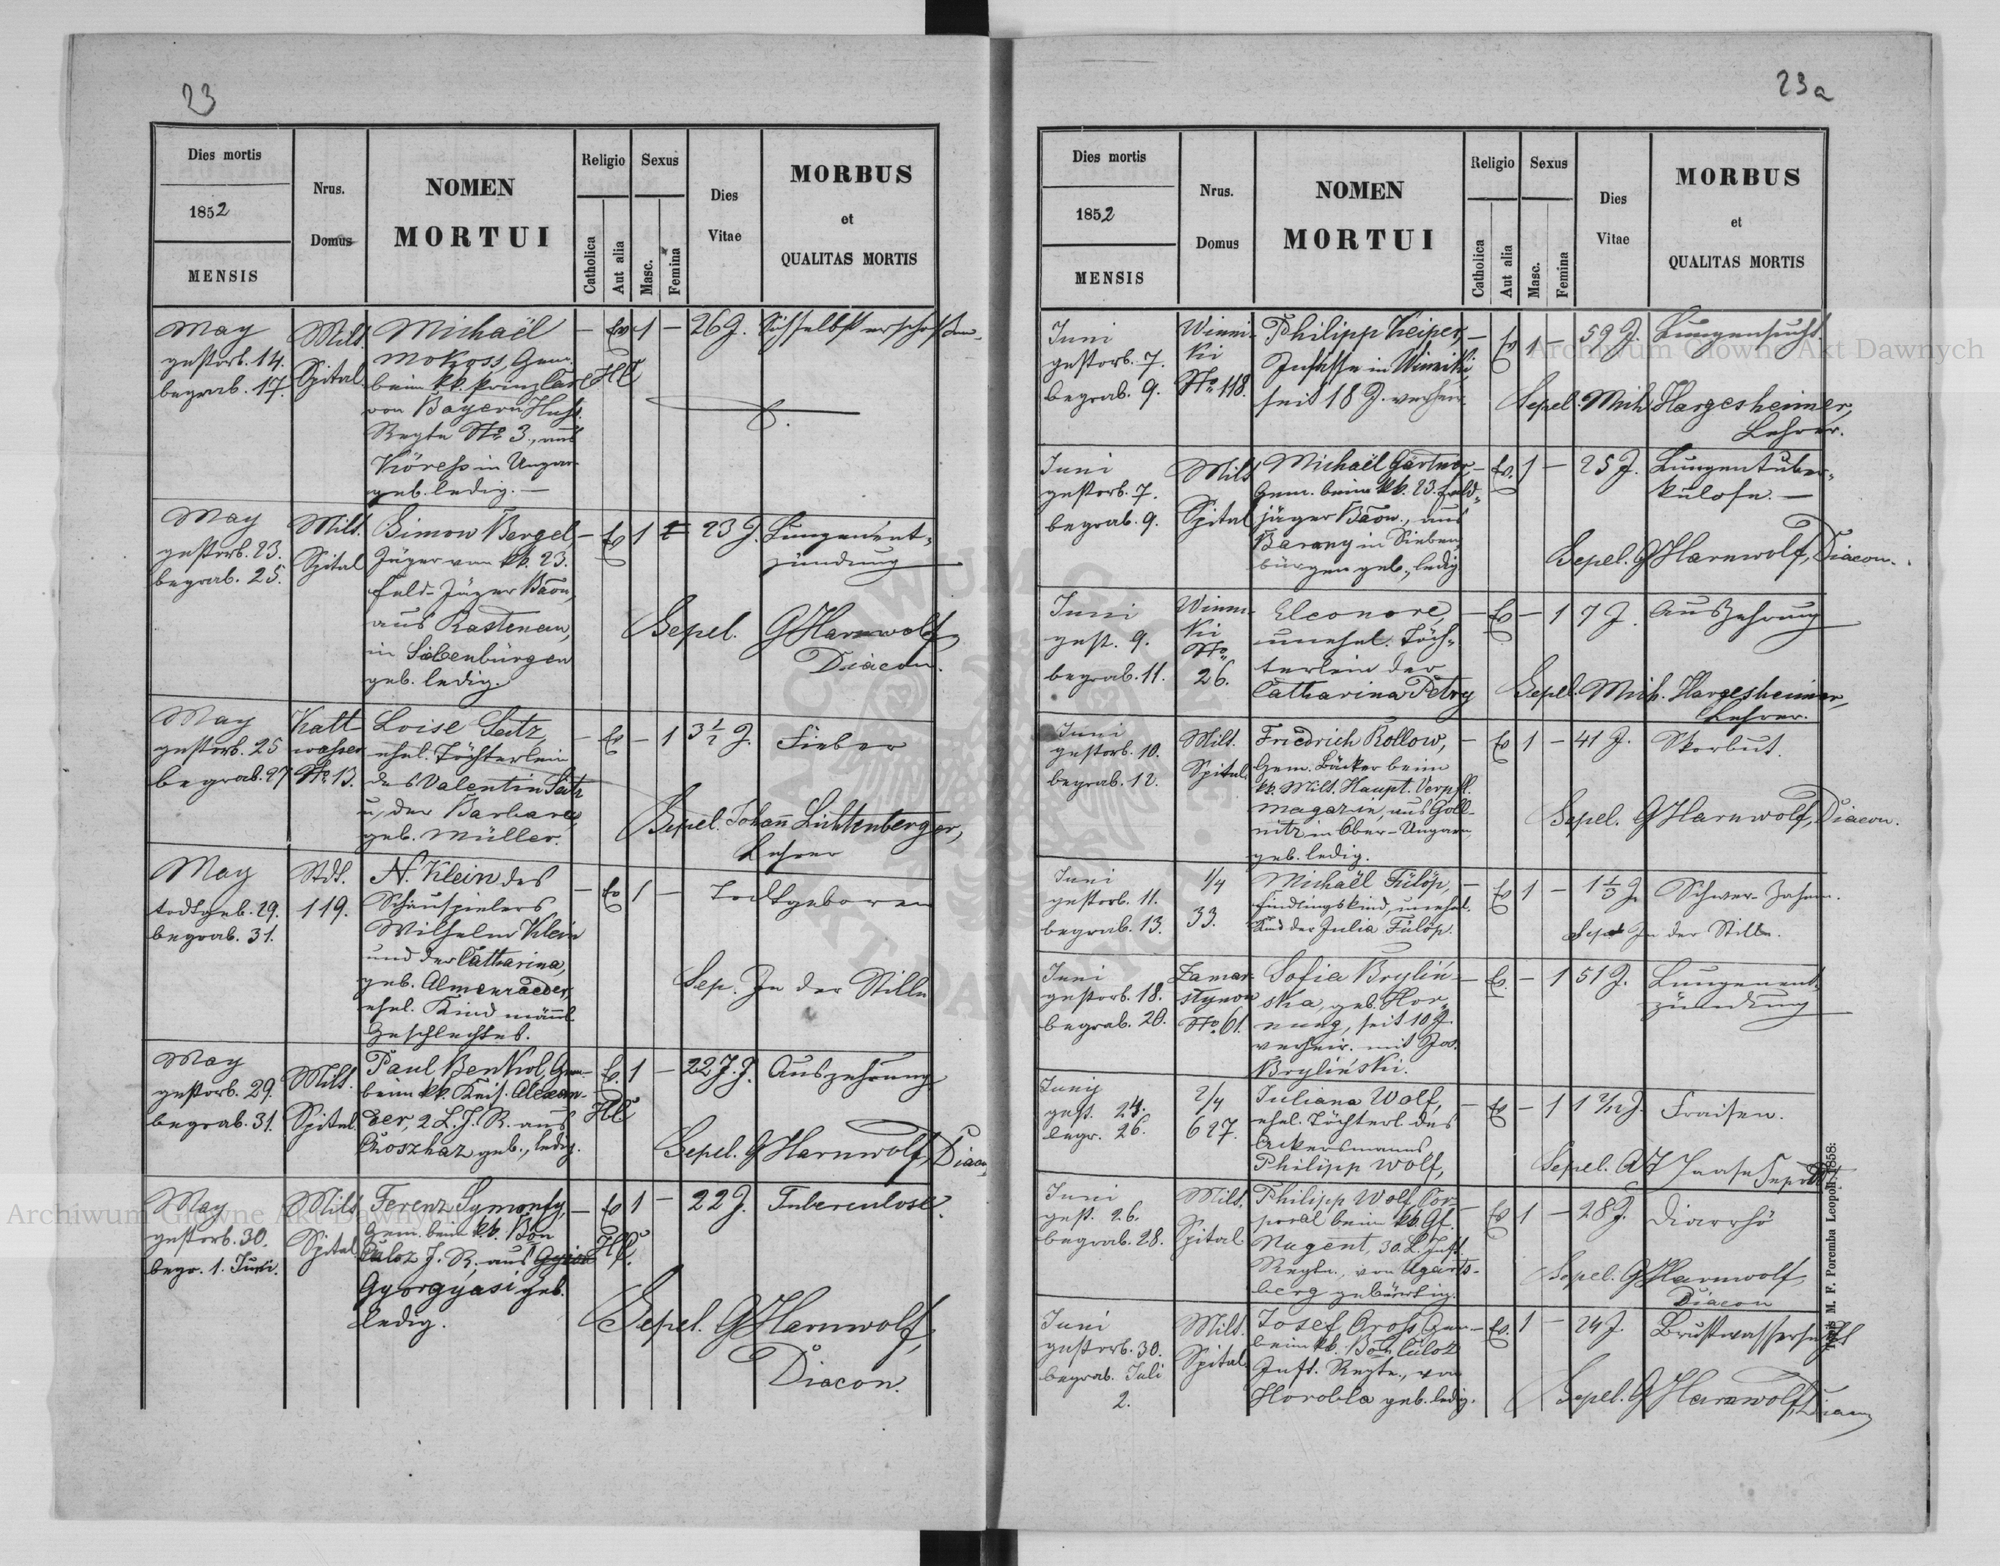 23
Dies mortis
1852
MENSIS
Nrus.
Domus
NOMEN
MORTUI
Religio
Catholica
Aut alia
Sexus
Masc.
Femina
Dies
Vitae
MORBUS
et
QUALITAS MORTIS
May
gestorb. 14.
begrab. 17.
Milt.
Spital
Michaël
Mokoss, Gem.
beim kk. Prinz Carl
von Bayern Huss.
Regte No 3., aus
Köress in Ungarn
geb. ledig. —
— Ev 1 — 26 J.
HC
Sich selbst erschossen
May
gestorb. 23.
begrab. 25.
Milt.
Spital
Simon Bergel
Jäger vom kk. 23.
Feld-Jäger Baon,
aus Kastenau,
in Siebenbürgen
geb. ledig.
— Ev 1 — 23 J.
Lungenent-
zündung
Sepel. GHarnwolf,
Diacon.
May
gestorb. 25
begrab. 27
Kalt
wasser
No 13.
Loise Seitz,
ehel. Töchterlein
des Valentin Seitz
u. der Barbara,
geb. Müller.
— Ev — 1 3 1/2 J.
Fieber
Sepel. Johann Lichtenberger,
Lehrer
May
todtgeb. 29.
begrab. 31.
Stdt.
119.
N. Klein des
Schauspielers
Wilhelm Klein
und der Catharina,
geb. Almenraeder,
ehel. Kind männl.
Geschlechtes.
— Ev 1 —
Todtgeboren
Sep. In der Stille
May
gestorb. 29.
begrab. 31.
Milt.
Spital.
Paul Benkol, Gem.
beim kk. Kais. Alexan-
der, 2 L. J. R. aus
geb., ledig.
Ev. 1 — 22 J.
HC
Auszehrung
Sepel. GHarnwolf, Diacon
May
gestorb. 30.
begr. 1. Juni.
Milt.
Spital
Ferenz Symonfy,
Gem. beim kk. Bon
Culoz J. R. aus
Györgyasi geb.
ledig.
— Ev 1 — 22 J.
HC.
Tuberculose.
Sepel. GHarnwolf,
Diacon.
23a
Dies mortis
1852
MENSIS
Nrus.
Domus
NOMEN
MORTUI
Religio
Catholica
Aut alia
Sexus
Masc.
Femina
Dies
Vitae
MORBUS
et
QUALITAS MORTIS
Juni
gestorb. 7.
begrab. 9.
Winni-
ki
No 118.
Philipp Keiper,
Insasse in Winniki,
seit 18 J. verheir.
— Ev 1 — 59 J.
Lungensucht
Sepel. Mich. Hargesheimer,
Lehrer.
Juni
gestorb. 7.
begrab. 9.
Milt
Spital
Michaël Gärtner,
Gem. beim kk. 23. Feld-
jäger Baon., aus
Barany in Sieben
bürgen geb., ledig.
— Ev. 1 — 25 J.
Lungentuber-
kulose. —
Sepel. GHarnwolf, Diacon.
Juni
gest. 9.
begrab. 11.
Winni-
ki
No
26.
Eleonore,
unehel. Töch-
terlein der
Catharina Petry
— Ev — 1 7 J.
Auszehrung
Sepel. Mich. Hargesheimer,
Lehrer.
Juni
gestorb. 10.
begrab. 12.
Milt.
Spital.
Friedrich Rollow,
Gem. Bäcker beim
kk. Milt. Haupt. Verpfl.
Magazin, aus Goll-
nitz in Ober-Ungarn,
geb. ledig.
— Ev 1 — 41 J.
Skorbut.
Sepel. GHarnwolf, Diacon.
Juni
gestorb. 11.
begrab. 13.
1/4
33.
Michaël Fülöp,
Findlingskind, unehel.
Kind der Julia Fülöp.
— Ev 1 — 1 1/3 J.
Schwer-Zahnen.
Sep. In der Stille.
Juni
gestorb. 18.
begrab. 20.
Zamar-
stynow
No 61.
Sofia Brylin-
ska, geb. Hor-
nung, seit 10 J.
verheir. mit Jos.
Bryliński.
— Ev. — 1 51 J.
Lungenent-
zündung
Juny
gest. 24.
begr. 26.
2/4
627.
Juliana Wolf,
ehel. Töchterl. des
Ackersmanns
Philipp Wolf,
— Ev — 1 1 2/12 J.
Fraisen.
Sepel. Haase
Juni
gest. 26.
begrab. 28.
Milt.
Spital
Philipp Wolf, Cor-
poral beim kk. Gf.
Nugent, 30. L. Inft.
Regte., von Ugarts-
berg gebürtig.
— Ev 1 — 28 J.
Diarrhö
Sepel. GHarnwolf
Diacon
Juni
gestorb. 30.
begrab. Juli
2.
Milt.
Spital
Josef Gross, Gem.
beim kk. Bon Culoz
Inft. Regte., von
Horobla geb. ledig.
— Ev. 1 — 24 J.
Brustwassersucht
Sepel. GHarnwolf, Diacon
Typis M. F. Poremba Leopoli 1858:
Archiwum Główne Akt Dawnych
Archiwum Główne Akt Dawnych
ARCHIWUM GŁÓWNE AKT DAWNYCH